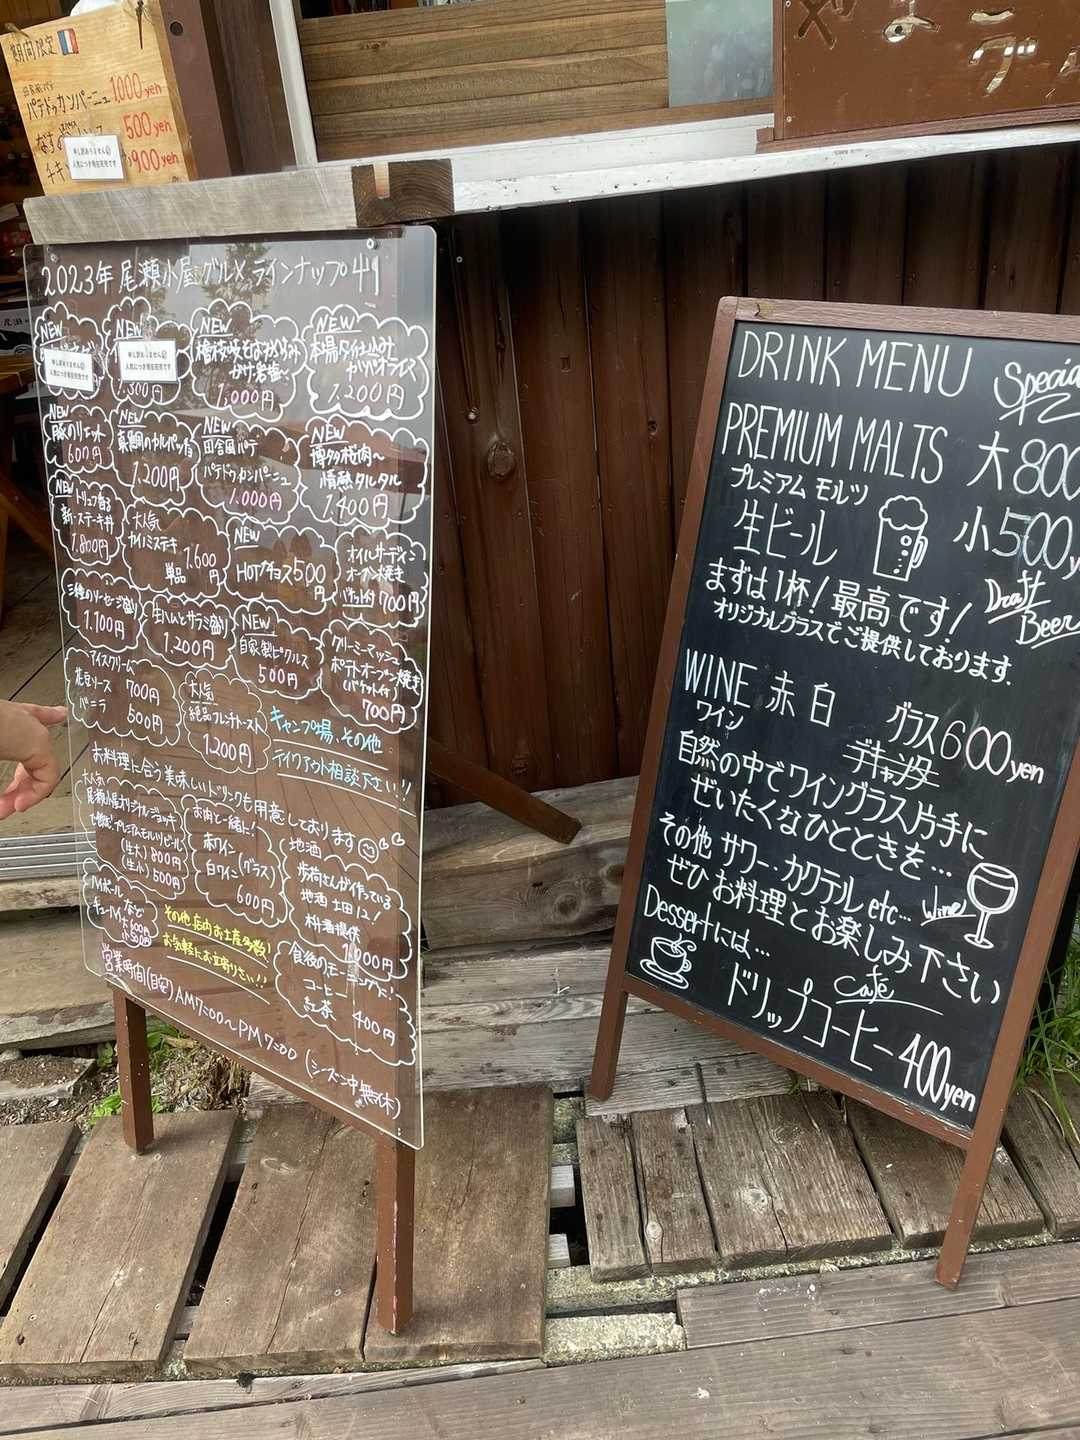 期間限定
パテドカンパーニュ 1,000yen
500yen
900yen
申し訳ありません
人気につき現在完売です
2023年 尾瀬小屋 グルメ ラインナップ 41
NEW
申し訳ありません
人気につき現在完売です
NEW
申し訳ありません
人気につき現在完売です
1,300円
NEW
檜枝岐そば
かけ岩塩〜
1,000円
NEW
本場タイ仕込み
ガパオライス
1,200円
NEW
豚のリエット
600円
NEW
真鯛のカルパッチョ
1,200円
NEW
田舎風パテ
パテドゥカンパーニュ
1,000円
NEW
博多桜肉〜
情熱タルタル
1,400円
NEW
トリュフ香る
新・ステーキ丼
1,800円
大人気
サイコロステーキ
単品
1,600円
NEW
HOTチョス500円
オイルサーディン
オーブン焼き
バケット付 700円
三種のソーセージ盛り
1,100円
生ハムとサラミ盛り
1,200円
NEW
自家製ピクルス
500円
クリーミーマッシュ
ポテトオーブン焼き
(バケット付)
700円
アイスクリーム
花豆ソース 700円
バニラ 500円
大人気
絶品フレンチトースト
1,200円
キャンプ場、その他
テイクアウト相談下さい!!
お料理に合う美味しいドリンクも用意しております
大人気
尾瀬小屋オリジナルジョッキ
で飲む、プレミアムモルツビール
(生大) 800円
(生小) 500円
お肉と一緒に!
赤ワイン
白ワイン (グラス)
600円
地酒
歩荷さんが作っている
地酒 土田12!
枡酒提供
1,000円
ハイボール
チューハイなど
大 600円
小 500円
その他店内お土産多数!
お気軽にお立寄りさい!!
食後のモーニングに!
コーヒー
紅茶 400円
営業時間(目安) AM7:00〜PM7:00
(シーズン中無休)
DRINK MENU
Special
PREMIUM MALTS 大800
プレミアム モルツ
生ビール 小500y
まずは1杯! 最高です!
Draft
Beer
オリジナルグラスでご提供しております.
WINE 赤 白
ワイン
グラス600yen
デキャンタ
自然の中でワイングラス片手に
ぜいたくなひとときを…
その他 サワー・カクテル etc…
Wine
ぜひ お料理とお楽しみ下さい
Dessertには…
Cafe
ドリップコーヒー400yen